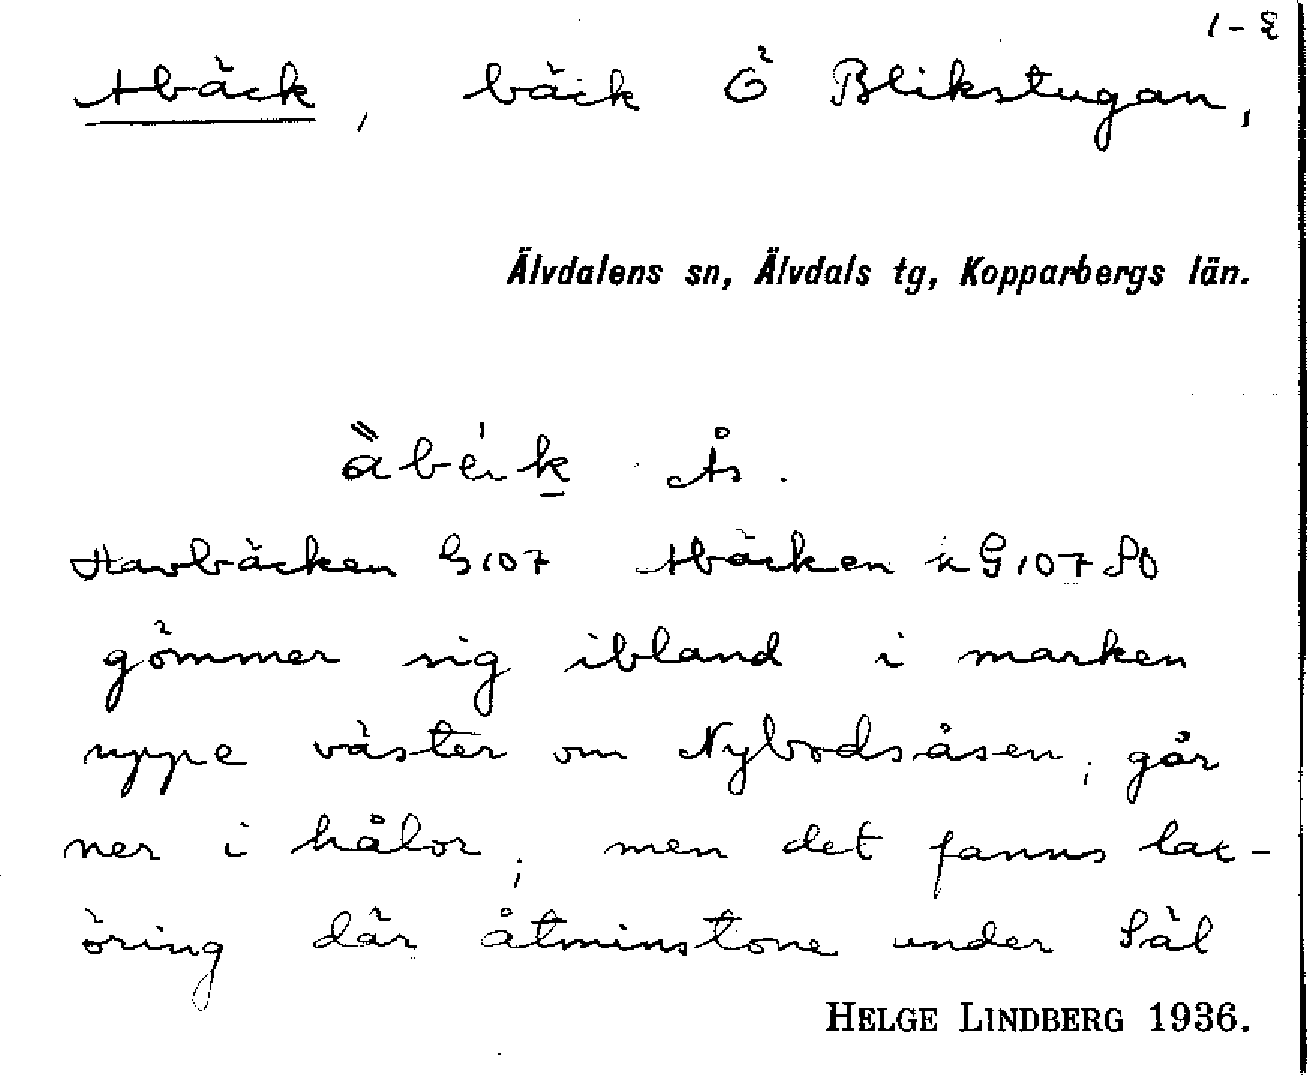 1-2
Abäck, bäck Ö Blikstugan,
Älvdalens sn, Älvdals tg, Kopparbergs län.
Ås.
Havbäcken G107 Abäcken G107 SO
gömmer sig ibland i marken
uppe väster om Nybodsåsen, går
ner i hålor, men det fanns lax-
öring där åtminstone under Säl
HELGE LINDBERG 1936.